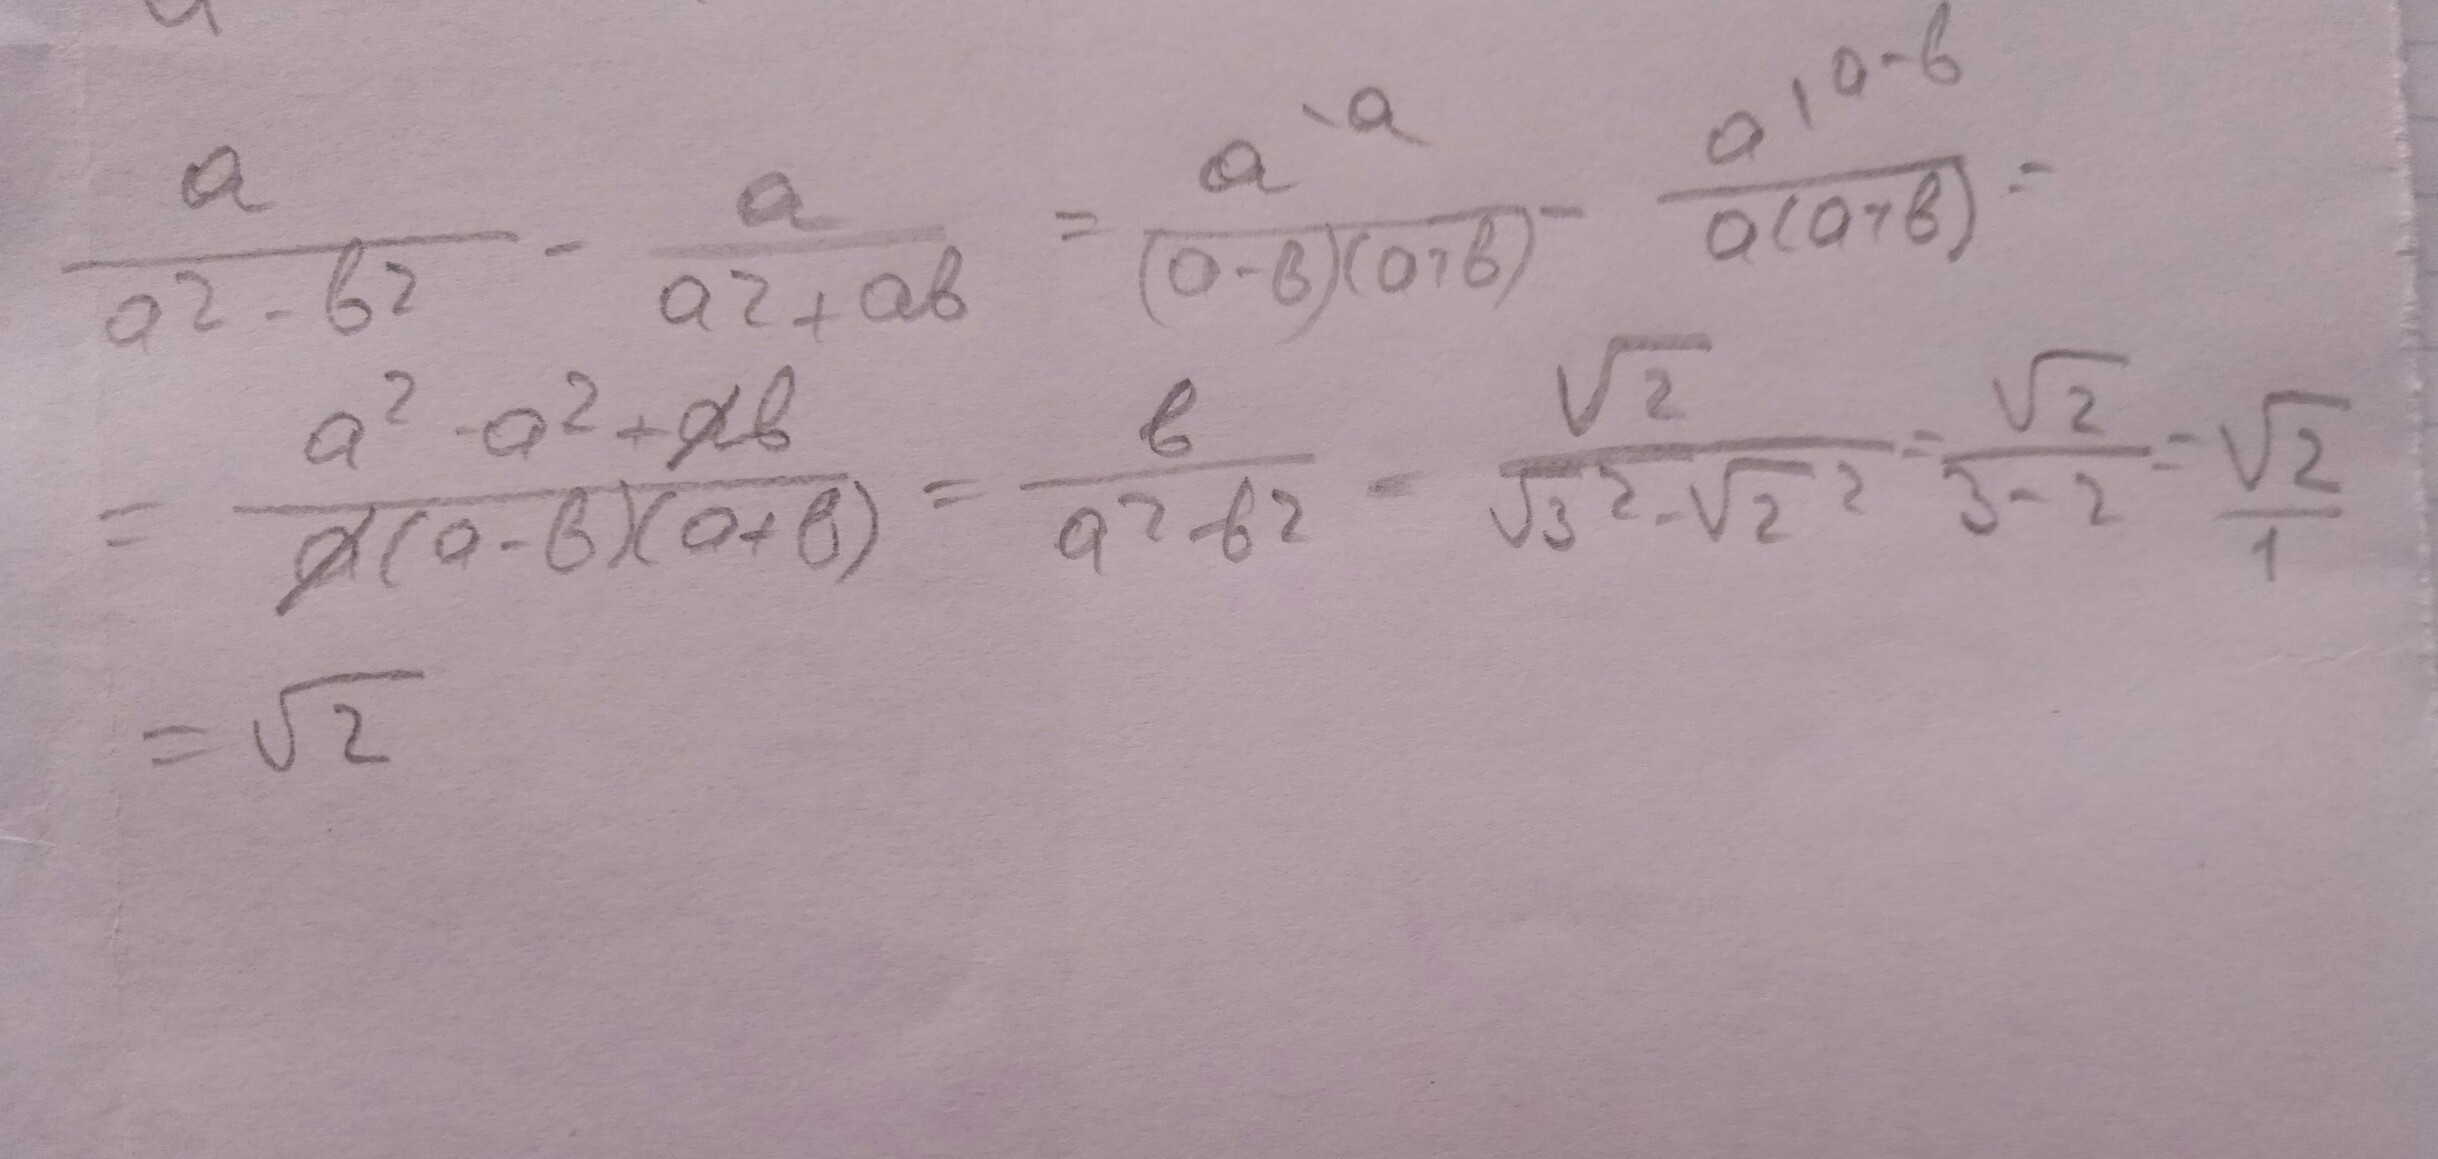 a/(a² - b²) - a/(a² + ab) = a\a/((a-b)(a+b)) - a\a-b/(a(a+b)) =
= (a² - a² + ab)/(a(a-b)(a+b)) = b/(a² - b²) = √2/(√3² - √2²) = √2/(3-2) = √2/1
= √2